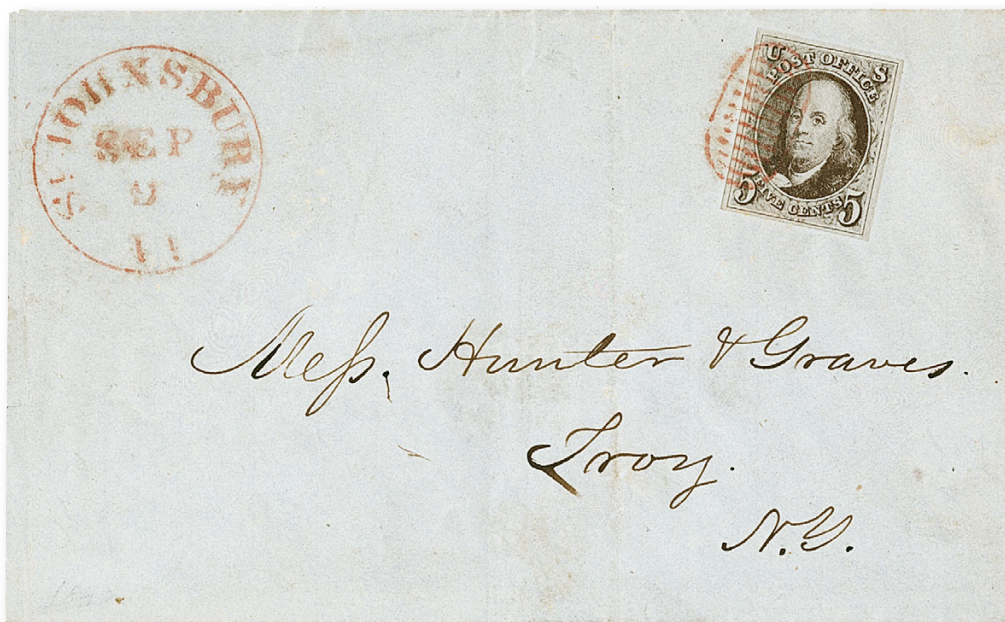 St. JOHNSBURY
SEP
9
U S
POST OFFICE
FIVE CENTS
5 5
Mess. Hunter & Graves.
Troy.
N.Y.